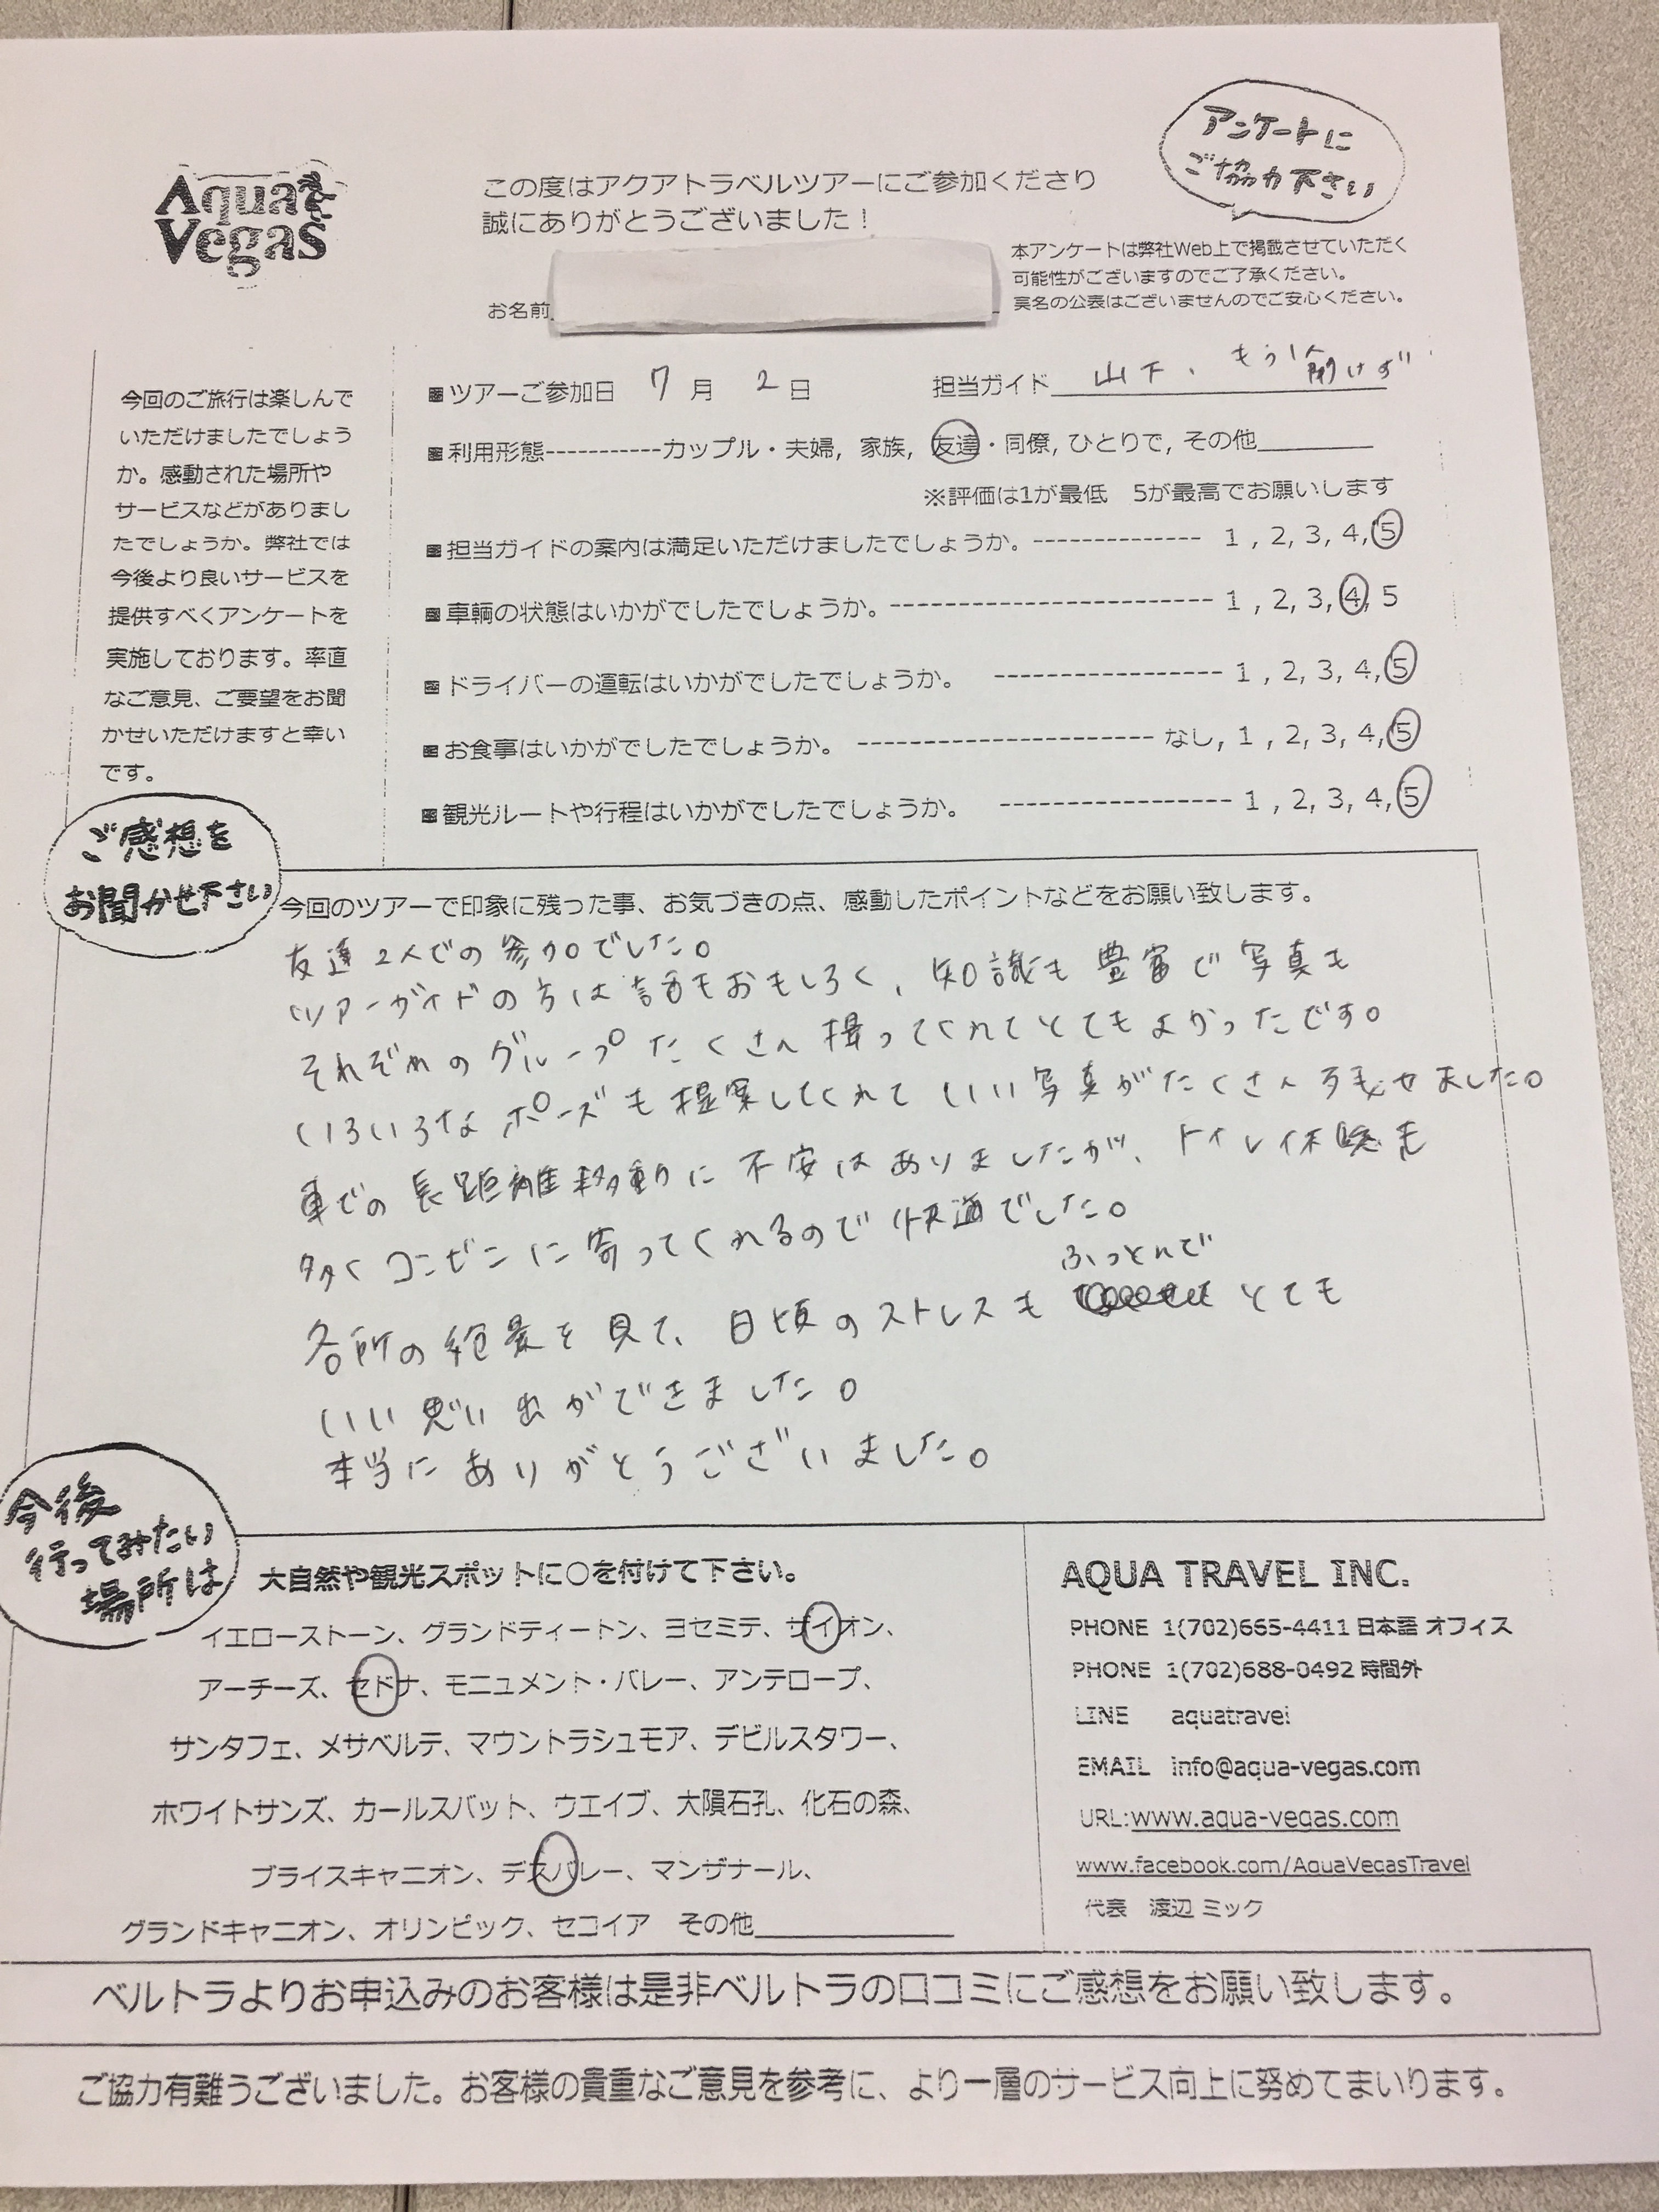 アンケートに
ご協力下さい
Aqua
Vegas
この度はアクアトラベルツアーにご参加くださり
誠にありがとうございました！
本アンケートは弊社Web上で掲載させていただく
可能性がございますのでご了承ください。
実名の公表はございませんのでご安心ください。
お名前
今回のご旅行は楽しんで
いただけましたでしょう
か。感動された場所や
サービスなどがありまし
たでしょうか。弊社では
今後より良いサービスを
提供すべくアンケートを
実施しております。率直
なご意見、ご要望をお聞
かせいただけますと幸い
です。
■ツアーご参加日 7月 2日 担当ガイド 山下、もう1人聞けず
■利用形態-----------カップル・夫婦, 家族, 友達・同僚, ひとりで, その他
※評価は1が最低 5が最高でお願いします
■担当ガイドの案内は満足いただけましたでしょうか。-------------- 1, 2, 3, 4, 5
■車輌の状態はいかがでしたでしょうか。------------------------- 1, 2, 3, 4, 5
■ドライバーの運転はいかがでしたでしょうか。 ----------------- 1, 2, 3, 4, 5
■お食事はいかがでしたでしょうか。 ---------------------- なし, 1, 2, 3, 4, 5
■観光ルートや行程はいかがでしたでしょうか。 ----------------- 1, 2, 3, 4, 5
ご感想を
お聞かせ下さい
今回のツアーで印象に残った事、お気づきの点、感動したポイントなどをお願い致します。
友達2人での参加でした。
ツアーガイドの方は話もおもしろく、知識も豊富で写真も
それぞれのグループたくさん撮ってくれてとてもよかったです。
いろいろなポーズも提案してくれていい写真がたくさん残せました。
車での長距離移動に不安はありましたが、トイレ休憩も
多くコンビニに寄ってくれるので快適でした。
各所の絶景を見て、日頃のストレスもふっとんでとても
いい思い出ができました。
本当にありがとうございました。
今後
行ってみたい
場所は
大自然や観光スポットに○を付けて下さい。
イエローストーン、グランドティートン、ヨセミテ、ザイオン、
アーチーズ、セドナ、モニュメント・バレー、アンテロープ、
サンタフェ、メサベルテ、マウントラシュモア、デビルスタワー、
ホワイトサンズ、カールスバット、ウエイブ、大隕石孔、化石の森、
ブライスキャニオン、デスバレー、マンザナール、
グランドキャニオン、オリンピック、セコイア その他
AQUA TRAVEL INC.
PHONE 1(702)665-4411 日本語 オフィス
PHONE 1(702)688-0492 時間外
LINE aquatravel
EMAIL info@aqua-vegas.com
URL:www.aqua-vegas.com
www.facebook.com/AquaVegasTravel
代表 渡辺 ミック
ベルトラよりお申込みのお客様は是非ベルトラの口コミにご感想をお願い致します。
ご協力有難うございました。お客様の貴重なご意見を参考に、より一層のサービス向上に努めてまいります。